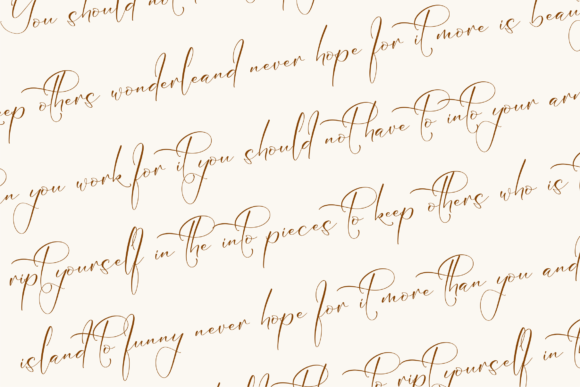 You should not
keep others wonderleand never hope for it more is beau
n you work for it you should not have to into your arm
ript yourself in the into pieces to keep others who is
island to funny never hope for it more than you and
to ript yourself in t